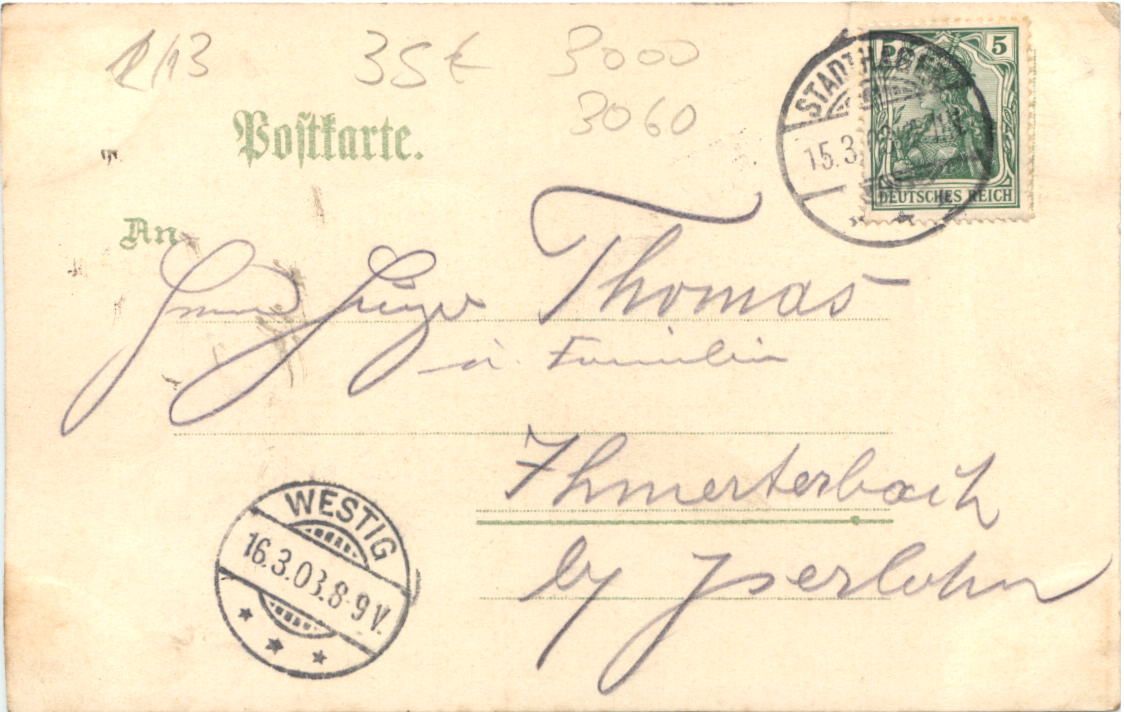 1/13 35€ 3000
3060
Postkarte.
5
DEUTSCHES REICH
15.3.
An
Thomas
u. Familie
Ihmerterbach
by Iserlohn
WESTIG
16.3.03.8-9V.